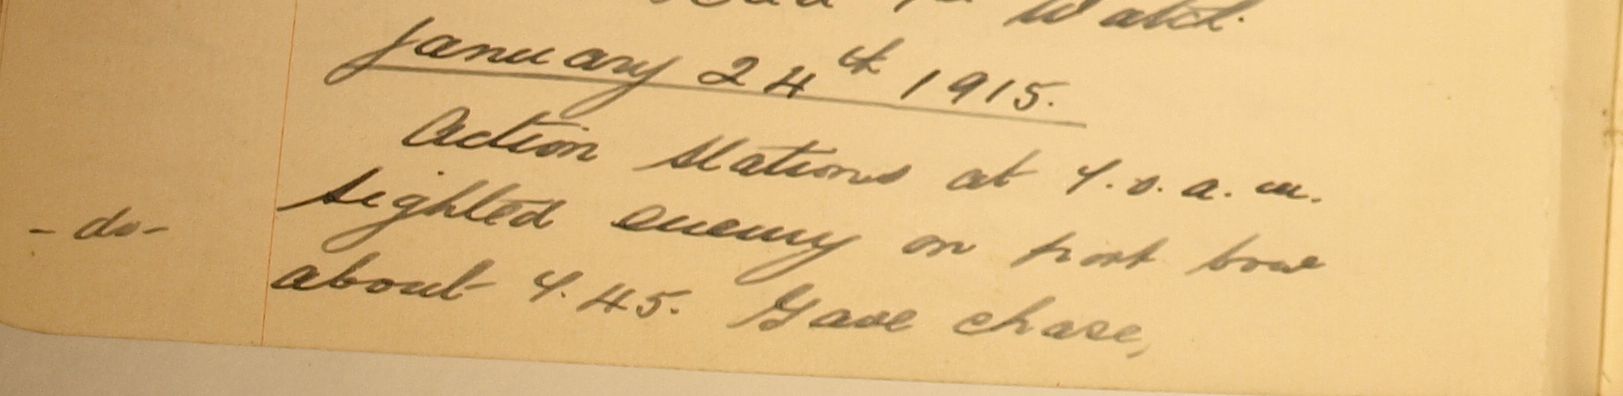 Watch.
January 24th 1915.
Action Stations at 7.0.a.m.
-do- sighted enemy on port bow
about 7.45. Gave chase,